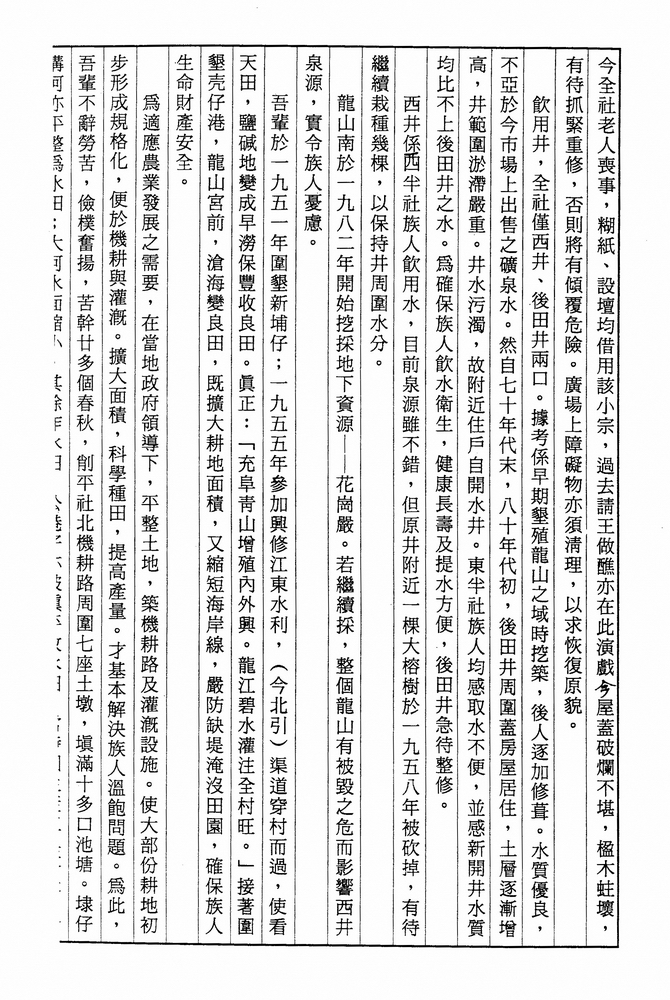 今全社老人喪事，糊紙、設壇均借用該小宗，過去請王做醮亦在此演戲今屋蓋破爛不堪，楹木蛀壞，
有待抓緊重修，否則將有傾覆危險。廣場上障礙物亦須清理，以求恢復原貌。
飲用井，全社僅西井、後田井兩口。據考係早期墾殖龍山之域時挖築，後人逐加修葺。水質優良，
不亞於今市場上出售之礦泉水。然自七十年代末，八十年代初，後田井周圍蓋房屋居住，土層逐漸增
高，井範圍淤滯嚴重。井水污濁，故附近住戶自開水井。東半社族人均感取水不便，並感新開井水質
均比不上後田井之水。爲確保族人飲水衛生，健康長壽及提水方便，後田井急待整修。
西井係西半社族人飲用水，目前泉源雖不錯，但原井附近一棵大榕樹於一九五八年被砍掉，有待
繼續栽種幾棵，以保持井周圍水分。
龍山南於一九八二年開始挖採地下資源——花崗嚴。若繼續採，整個龍山有被毀之危而影響西井
泉源，實令族人憂慮。
吾輩於一九五一年圍墾新埔仔；一九五五年參加興修江東水利，（今北引）渠道穿村而過，使看
天田，鹽碱地變成早澇保豐收良田。眞正：「充阜靑山增殖內外興。龍江碧水灌注全村旺。」接著圍
墾壳仔港，龍山宮前，滄海變良田，既擴大耕地面積，又縮短海岸線，嚴防缺堤淹沒田園，確保族人
生命財產安全。
爲適應農業發展之需要，在當地政府領導下，平整土地，築機耕路及灌溉設施。使大部份耕地初
步形成規格化，便於機耕與灌溉。擴大面積，科學種田，提高產量。才基本解決族人溫飽問題。爲此，
吾輩不辭勞苦，儉樸奮揚，苦幹廿多個春秋，削平社北機耕路周圍七座土墩，塡滿十多口池塘。埭仔
溝河亦平整爲水田；大河水面縮小，其餘作水田